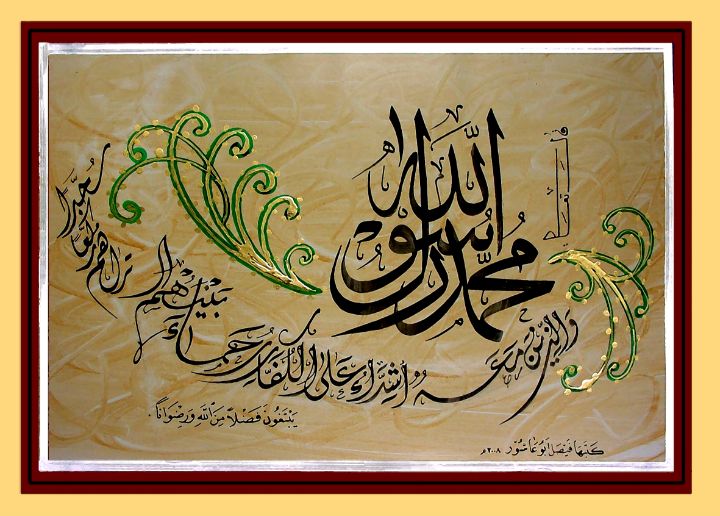 محمد رسول الله
والذين معه أشداء على الكفار رحماء بينهم تراهم ركعا سجدا
يَبْتَغُونَ فَضْلاً مِنَ اللهِ وَرِضْوَاناً
كتبها فيصل أبو عاشور ٢٠٠٨م